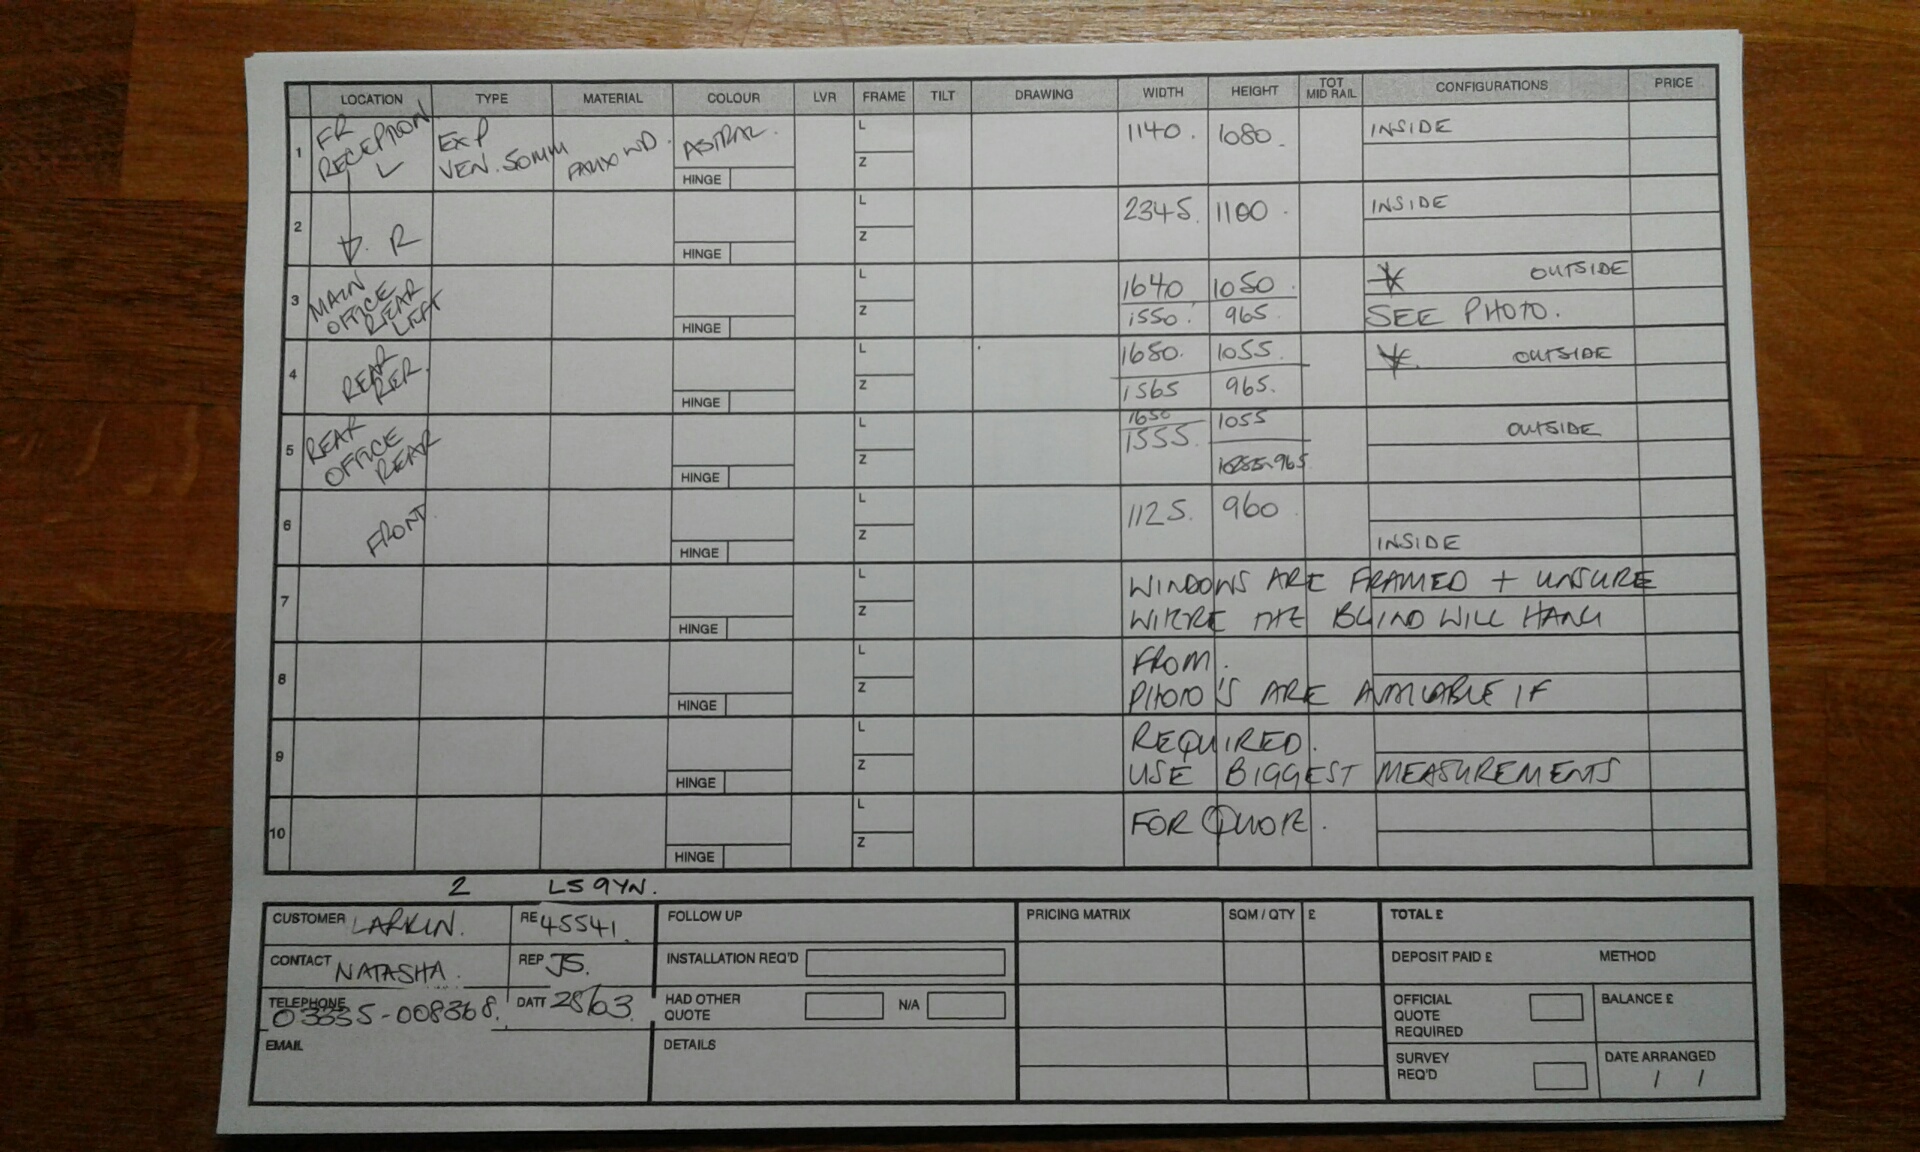 LOCATION TYPE MATERIAL COLOUR LVR FRAME TILT DRAWING WIDTH HEIGHT TOT MID RAIL CONFIGURATIONS PRICE
1 FR RECEPTION L EXP VEN. 50MM FAUX WD. ASTRAL. HINGE L Z 1140. 1080. INSIDE
2 R HINGE L Z 2345. 1100. INSIDE
3 MAIN OFFICE REAR LEFT HINGE L Z 1640 1050. OUTSIDE
1550. 965. SEE PHOTO.
4 REAR HINGE L Z 1650. 1055. OUTSIDE
1565 965.
5 REAR OFFICE REAR HINGE L Z 1650 1055 OUTSIDE
1555. 965
6 FRONT. HINGE L Z 1125. 960 INSIDE
7 HINGE L Z WINDOWS ARE FRAMED + UNSURE
WHERE THE BLIND WILL HANG
8 HINGE L Z FROM.
PHOTO'S ARE AVAILABLE IF
9 HINGE L Z REQUIRED.
USE BIGGEST MEASUREMENTS
10 HINGE L Z FOR QUOTE.
2 LS9YN.
CUSTOMER LARKIN. RE 45541. FOLLOW UP PRICING MATRIX SQM / QTY £ TOTAL £
CONTACT NATASHA. REP JS. INSTALLATION REQ'D DEPOSIT PAID £ METHOD
TELEPHONE 03335-008368. 28/03. HAD OTHER QUOTE N/A OFFICIAL QUOTE REQUIRED BALANCE £
EMAIL DETAILS SURVEY REQ'D DATE ARRANGED / /